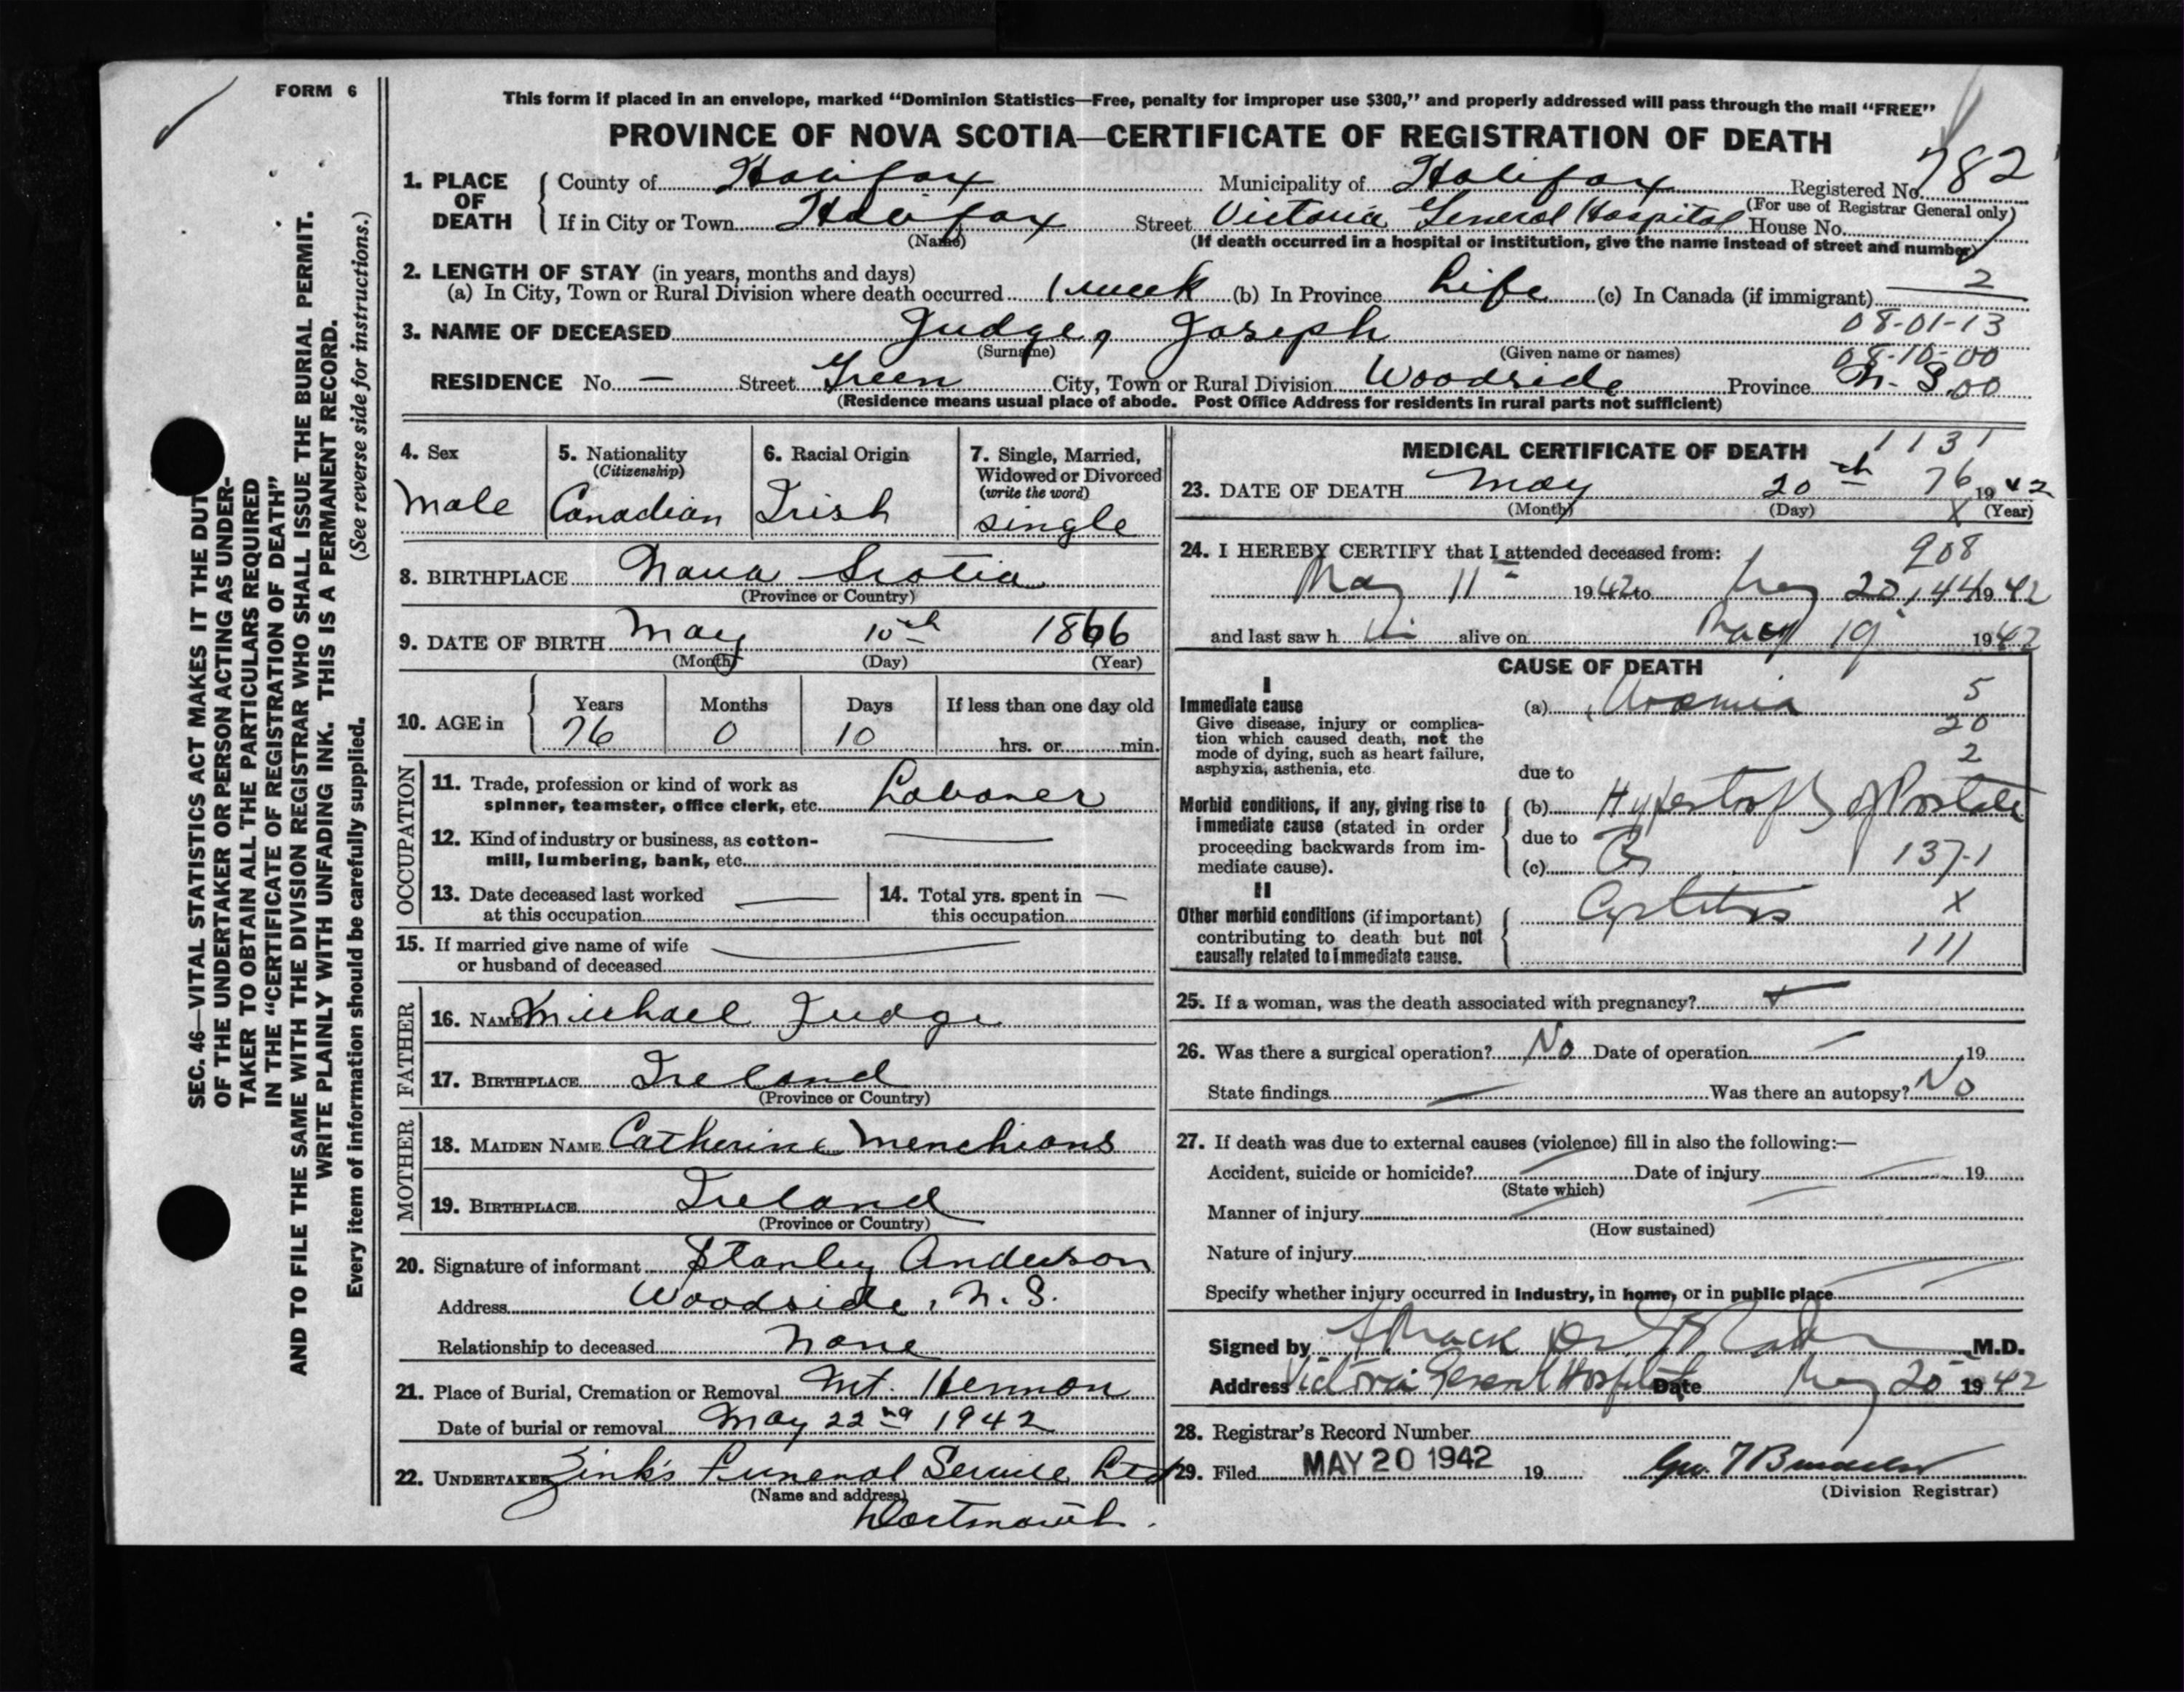 FORM 6
This form if placed in an envelope, marked "Dominion Statistics—Free, penalty for improper use $300," and properly addressed will pass through the mail "FREE"
PROVINCE OF NOVA SCOTIA—CERTIFICATE OF REGISTRATION OF DEATH
782
1. PLACE OF DEATH County of Halifax Municipality of Halifax Registered No.
(For use of Registrar General only)
If in City or Town Halifax Street Victoria General Hospital House No.
(Name) (If death occurred in a hospital or institution, give the name instead of street and number)
2. LENGTH OF STAY (in years, months and days)
(a) In City, Town or Rural Division where death occurred 1 week (b) In Province Life (c) In Canada (if immigrant) 2
08-01-13
3. NAME OF DECEASED Judge, Joseph
(Surname) (Given name or names) 08-10-00
RESIDENCE No. — Street Green City, Town or Rural Division Woodside Province N.S. 00
(Residence means usual place of abode. Post Office Address for residents in rural parts not sufficient)
4. Sex 5. Nationality (Citizenship) 6. Racial Origin 7. Single, Married, Widowed or Divorced (write the word)
Male Canadian Irish single
8. BIRTHPLACE Nova Scotia
(Province or Country)
9. DATE OF BIRTH May 10th 1866
(Month) (Day) (Year)
10. AGE in Years Months Days If less than one day old
76 0 10 hrs. or min.
OCCUPATION
11. Trade, profession or kind of work as spinner, teamster, office clerk, etc. Laborer
12. Kind of industry or business, as cotton-mill, lumbering, bank, etc. —
13. Date deceased last worked at this occupation —
14. Total yrs. spent in this occupation —
15. If married give name of wife or husband of deceased —
FATHER
16. NAME Michael Judge
17. BIRTHPLACE Ireland
(Province or Country)
MOTHER
18. MAIDEN NAME Catherine Menchions
19. BIRTHPLACE Ireland
(Province or Country)
20. Signature of informant Stanley Anderson
Address Woodside, N.S.
Relationship to deceased None
21. Place of Burial, Cremation or Removal Mt. Hermon
Date of burial or removal May 22nd 1942
22. UNDERTAKER Zink's Funeral Service Ltd
(Name and address)
Dartmouth.
MEDICAL CERTIFICATE OF DEATH 1131
23. DATE OF DEATH May 20th 76 1942
(Month) (Day) X (Year)
24. I HEREBY CERTIFY that I attended deceased from: 908
May 11th 1942 to May 20, 144 1942
and last saw him alive on May 19 1942
CAUSE OF DEATH
I
Immediate cause (a) Uraemia 5
Give disease, injury or complication which caused death, not the mode of dying, such as heart failure, asphyxia, asthenia, etc. 20
2
due to
Morbid conditions, if any, giving rise to immediate cause (stated in order proceeding backwards from immediate cause). (b) Hypertrophy of Prostate
due to
(c) 137-1
II
Other morbid conditions (if important) contributing to death but not causally related to immediate cause. Cystitis X
111
25. If a woman, was the death associated with pregnancy?
26. Was there a surgical operation? No Date of operation — 19
State findings — Was there an autopsy? No
27. If death was due to external causes (violence) fill in also the following:—
Accident, suicide or homicide? — Date of injury — 19
(State which)
Manner of injury
(How sustained)
Nature of injury
Specify whether injury occurred in Industry, in home, or in public place
Signed by M.D.
Address Victoria General Hospital Date May 20 1942
28. Registrar's Record Number
29. Filed MAY 20 1942 19
(Division Registrar)
SEC. 46—VITAL STATISTICS ACT MAKES IT THE DUTY
OF THE UNDERTAKER OR PERSON ACTING AS UNDER-
TAKER TO OBTAIN ALL THE PARTICULARS REQUIRED
IN THE "CERTIFICATE OF REGISTRATION OF DEATH"
AND TO FILE THE SAME WITH THE DIVISION REGISTRAR WHO SHALL ISSUE THE BURIAL PERMIT.
WRITE PLAINLY WITH UNFADING INK. THIS IS A PERMANENT RECORD.
Every item of information should be carefully supplied. (See reverse side for instructions.)